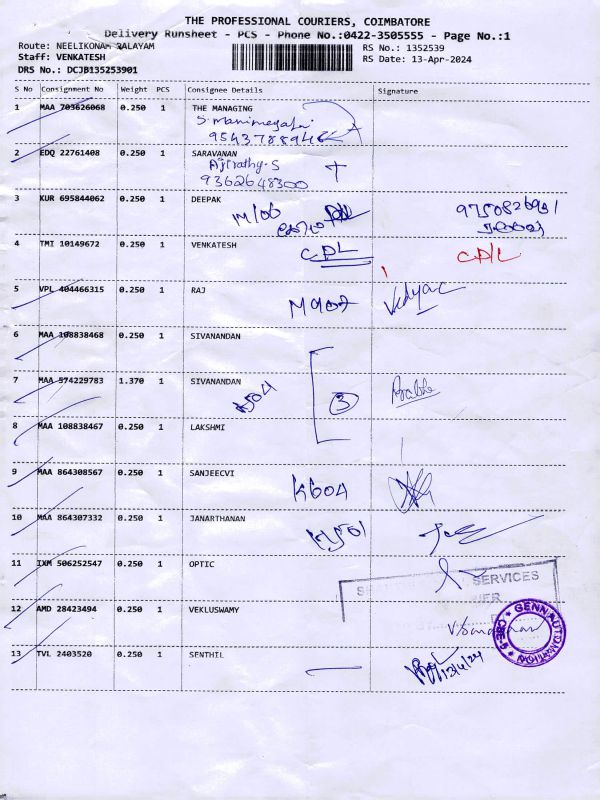 THE PROFESSIONAL COURIERS, COIMBATORE
Delivery Runsheet - PCS - Phone No.:0422-3505555 - Page No.:1
Route: NEELIKONAM PALAYAM
RS No.: 1352539
Staff: VENKATESH
RS Date: 13-Apr-2024
DRS No.: DCJB135253901
S No Consignment No Weight PCS Consignee Details Signature
1 MAA 703626068 0.250 1 THE MANAGING
S. Manimegalai
9543788946
2 EDQ 22761408 0.250 1 SARAVANAN
9362648300
3 KUR 695844062 0.250 1 DEEPAK
M106
4 TMI 10149672 0.250 1 VENKATESH
CPL
5 VPL 404466315 0.250 1 RAJ
M902 Vidya
6 MAA 108838468 0.250 1 SIVANANDAN
7 MAA 574229783 1.370 1 SIVANANDAN
A504 3
8 MAA 108838467 0.250 1 LAKSHMI
9 MAA 864308567 0.250 1 SANJEECVI
K604
10 MAA 864307332 0.250 1 JANARTHANAN
11 IXM 506252547 0.250 1 OPTIC
SERVICES
12 AMD 28423494 0.250 1 VEKLUSWAMY
GENN AUTOMATION
13 TVL 2403520 0.250 1 SENTHIL
13/4/24